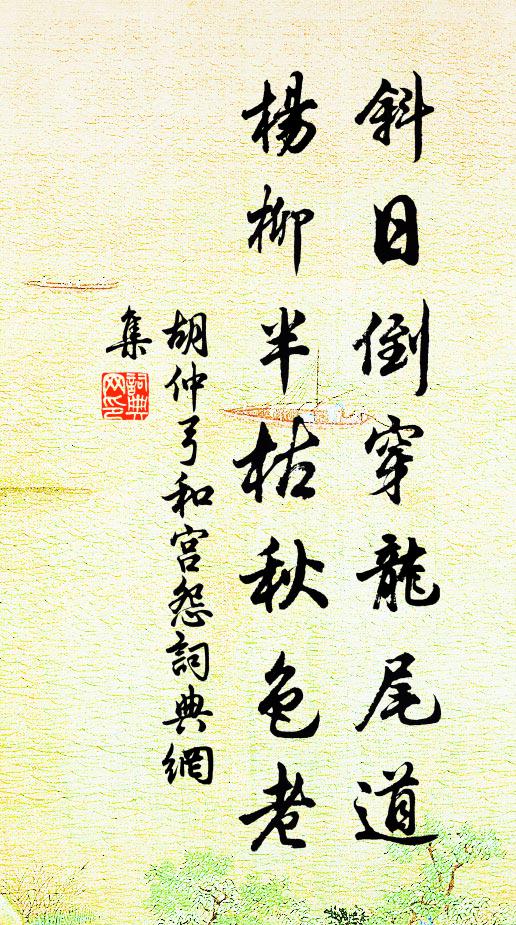 斜日倒穿龍尾道
楊柳半枯秋色老
胡仲弓和宮怨詞典網
集
詞典
网印